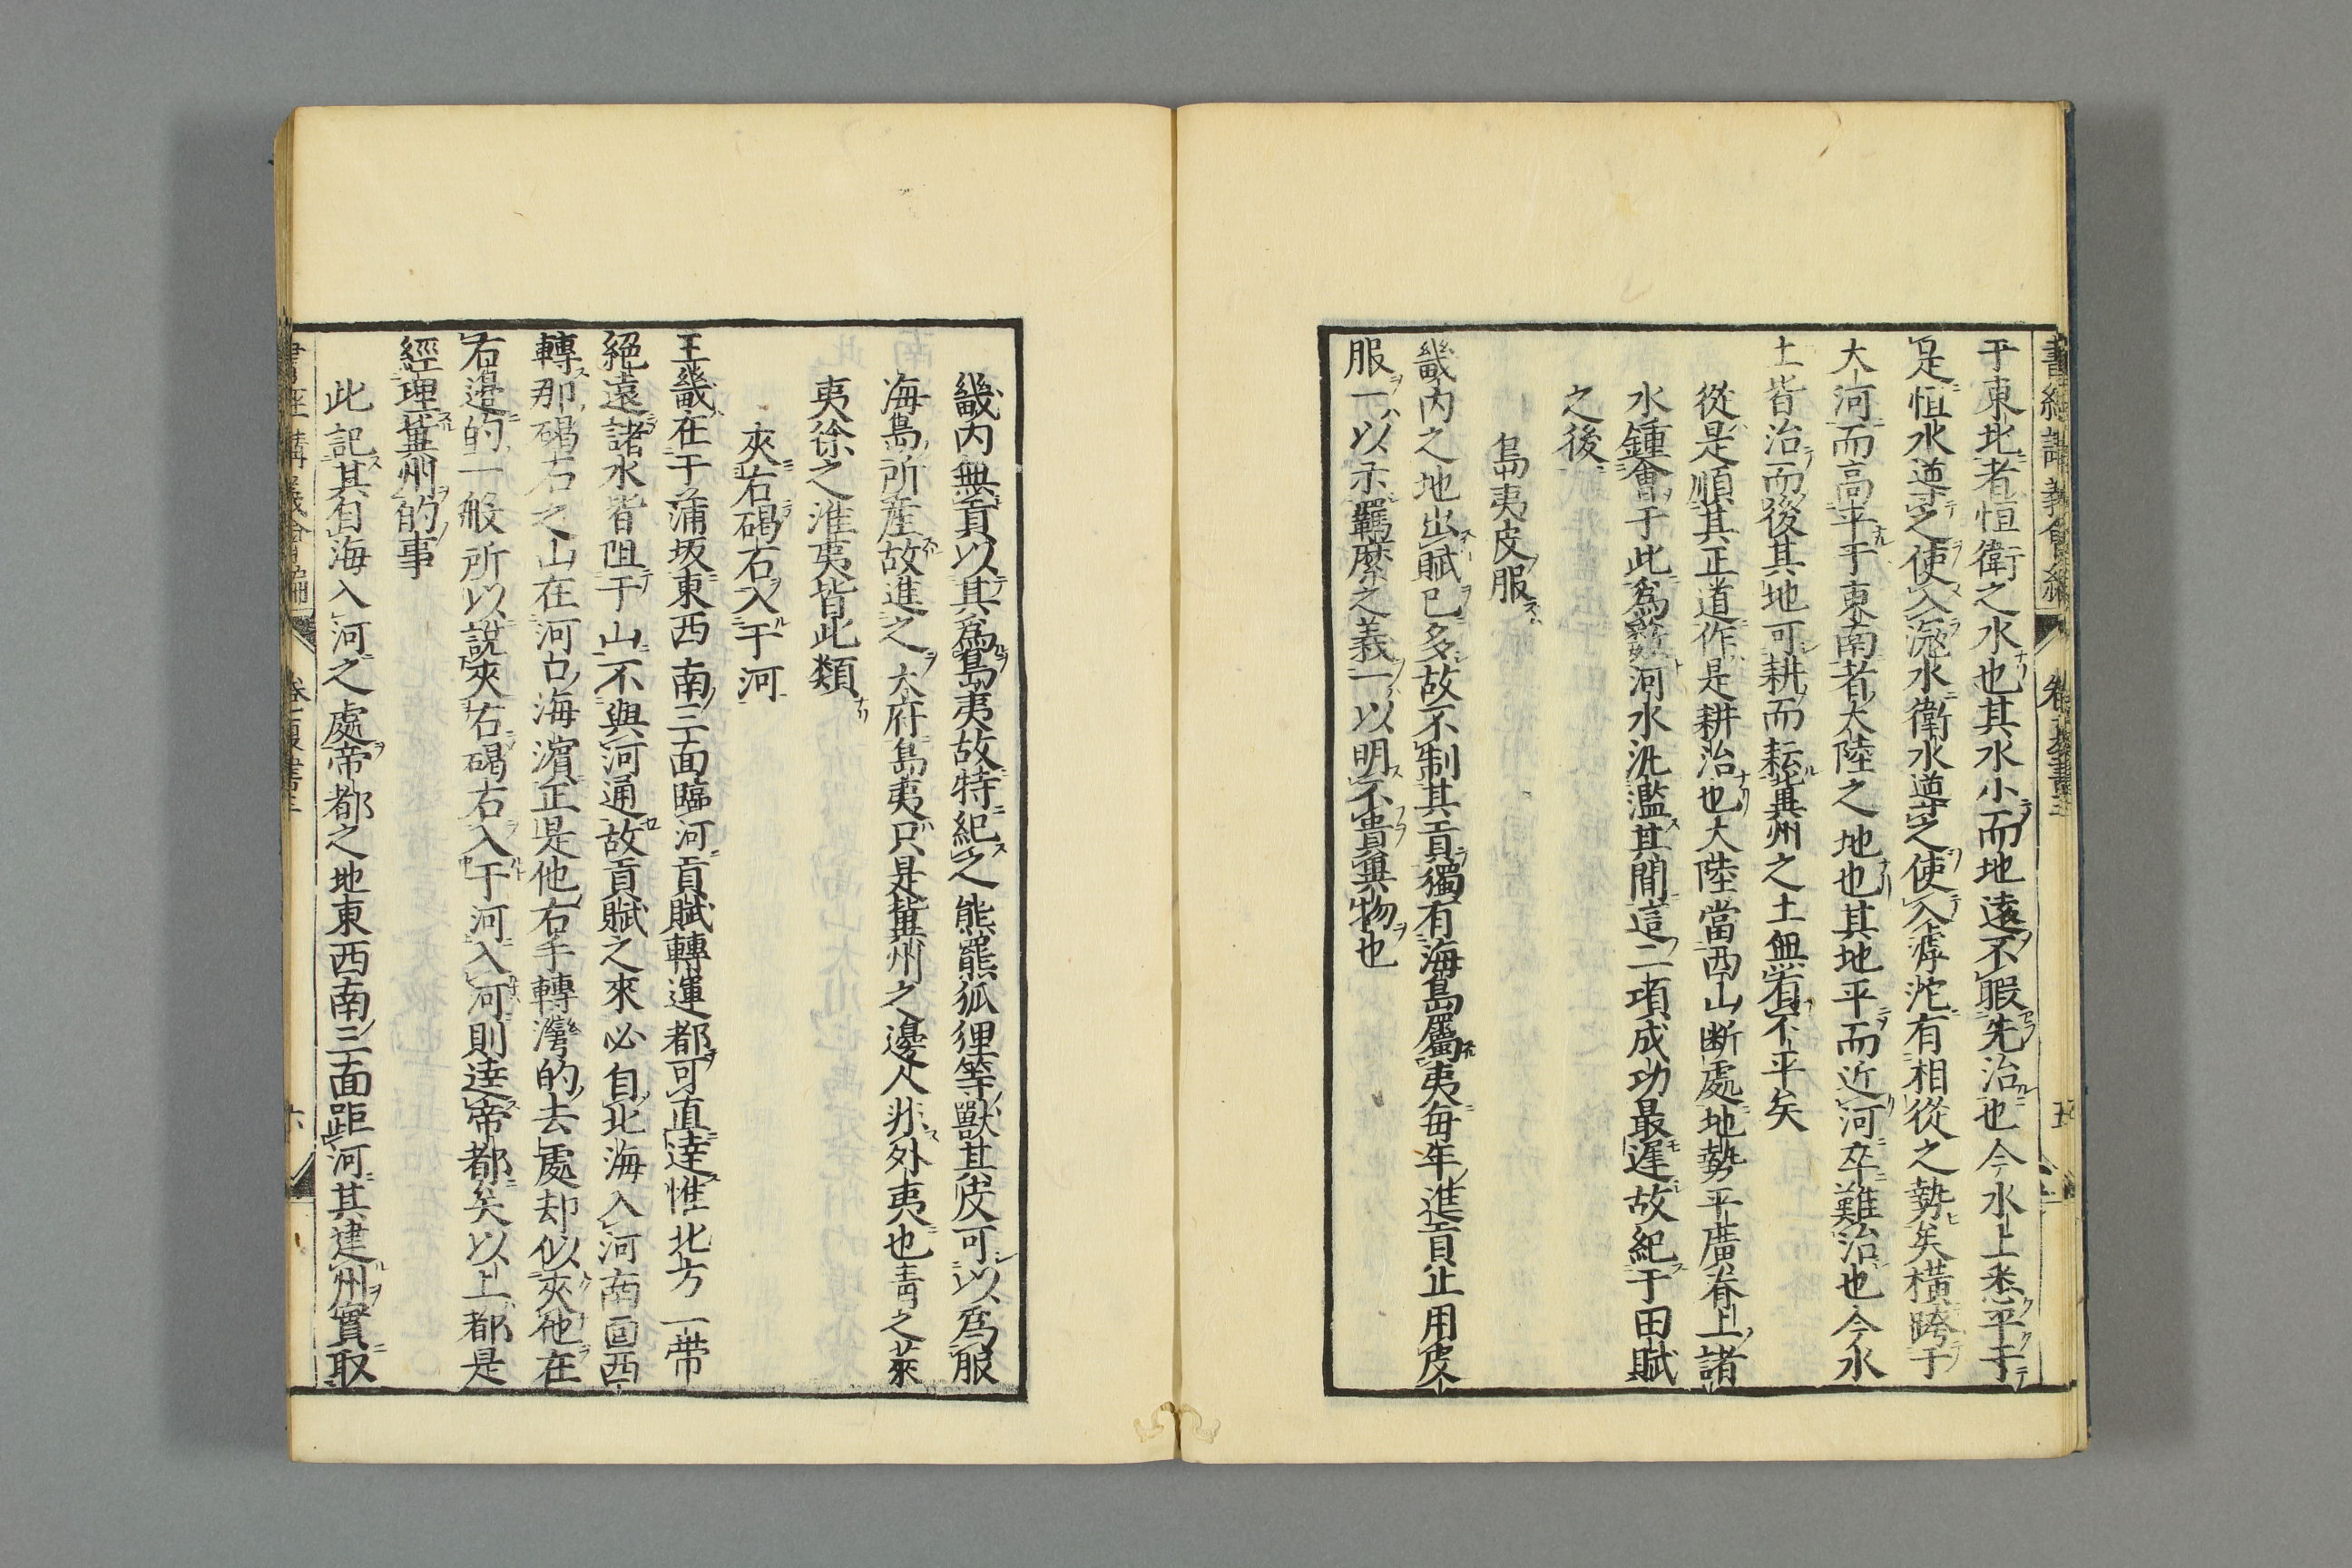 書經講義會編
卷之三夏書
五
于東北者恒衛之水也其水小而地遠不暇先治也今水土悉平于
是恒水導之使入滱水衛水導之使入滹沱有相從之勢矣橫跨于
大河而高平于東南者大陸之地也其地平而近河卒難治也今水
土皆治而後其地可耕而耘冀州之土無有不平矣
從是順其正道作是耕治也大陸當西山断處地勢平廣脊上諸
水鍾會于此為㪅河水汎濫其間這二項成功最遲故紀于田賦
之後
島夷皮服
畿内之地出賦已多故不制其貢獨有海島屬夷每年進貢止用皮
服一以示羈縻之義一以明不貴異物也
畿内無貢以其為島夷故特紀之熊羆狐狸等獸其皮可以為服
海島所産故進之大府島夷只是冀州之邊人非外夷也青之萊
夷徐之淮夷皆此類
夾右碣石入于河
王畿在于蒲坂東西南三面臨河貢賦轉運都可直達惟北方一帶
絕遠諸水皆阻于山不與河通故貢賦之來必自北海入河南面西
轉那碣石之山在河口海濵正是他右手轉灣的去處却似夾他在
右邉的一般所以說夾右碣石入于河入河則達帝都矣以上都是
經理冀州的事
此記其自海入河之處帝都之地東西南三面距河其建州實取
書經講義會編
卷之三夏書
六